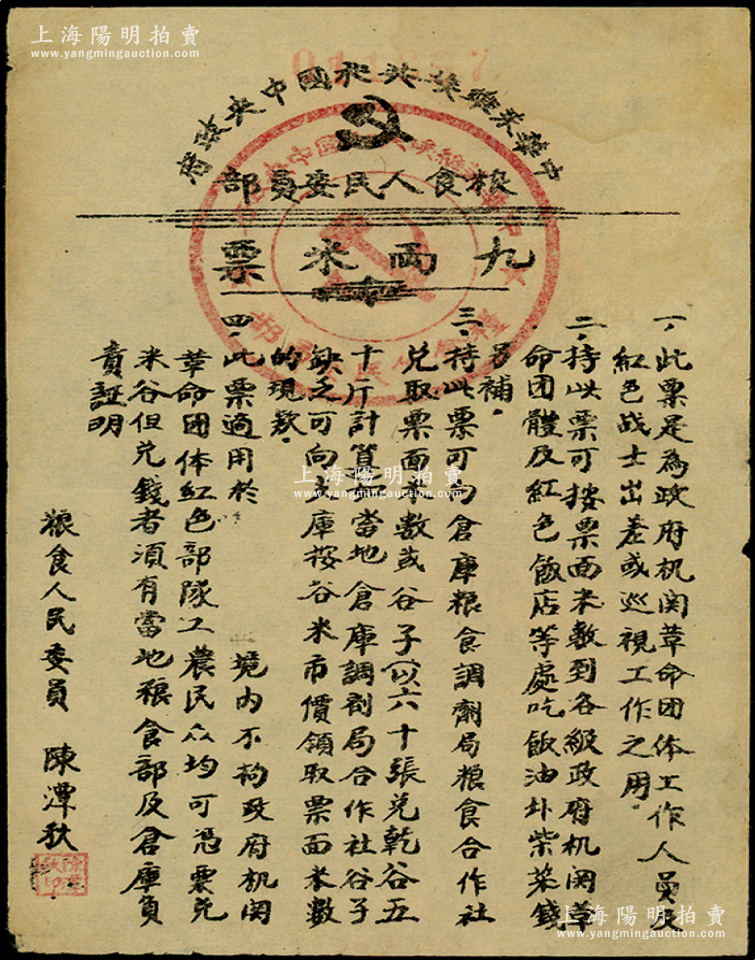 上海陽明拍賣
www.yangmingauction.com
中華苏維埃共和國中央政府
粮食人民委員部
九兩米票
一、此票是為政府机関革命团体工作人員及
紅色战士出差或巡視工作之用．
二、持此票可按票面米数到各級政府机関革
命团體及紅色飯店等處吃飯油圤柴菜錢
另補．
三、持此票可向倉庫粮食調劑局粮食合作社
兑取票面米數或谷子(以六十張兑乾谷五
十斤計算)當地倉庫調剂局合作社谷子
缺乏可向支庫按谷米市價領取票面米數
的現款．
四、此票適用於
境内不拘政府机関
革命团体紅色部隊工農民众均可憑票兑
米谷但兑錢者須有當地粮食部及倉庫負
責証明
粮食人民委員 陳潭秋
上海陽明拍賣
www.yangmingauction.com
上海陽明拍賣
www.yangmingauction.com